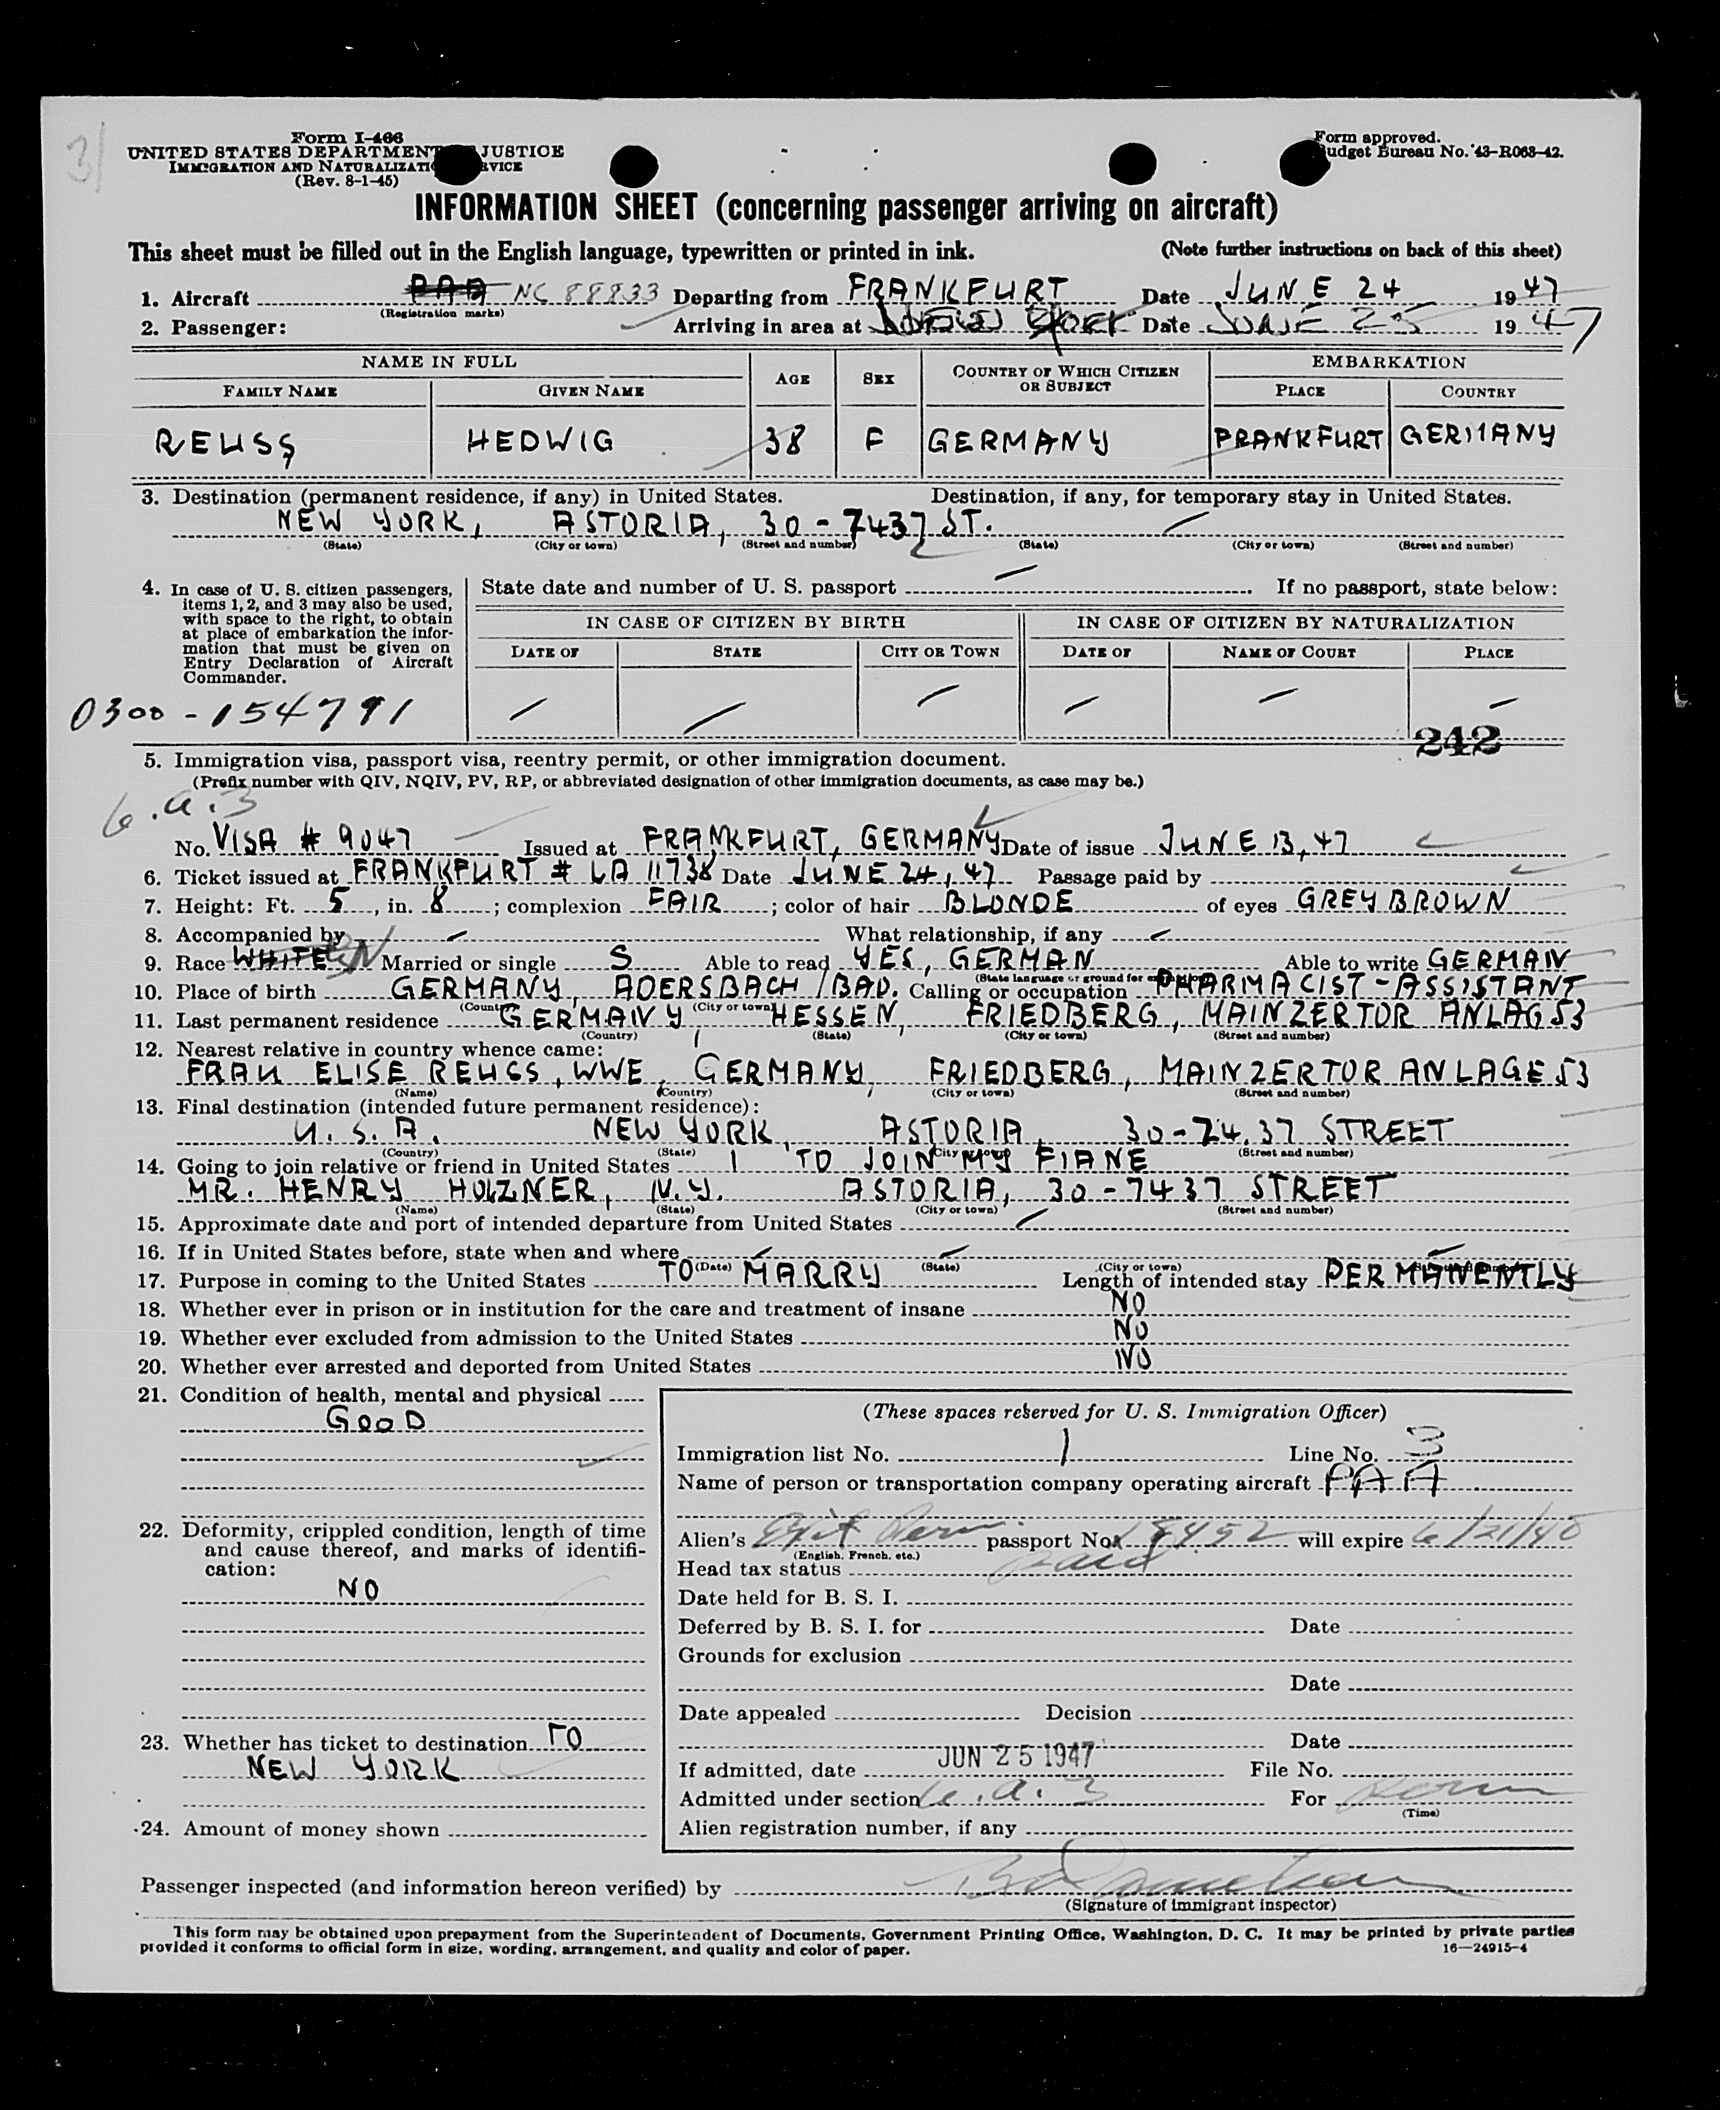 31
Form I-466
UNITED STATES DEPARTMENT JUSTICE
IMMIGRATION AND NATURALIZATI RVICE
(Rev. 8-1-45)
Form approved.
udget Bureau No. 43-R063-42.
INFORMATION SHEET (concerning passenger arriving on aircraft)
This sheet must be filled out in the English language, typewritten or printed in ink. (Note further instructions on back of this sheet)
1. Aircraft PAA NC 88833 Departing from FRANKFURT Date JUNE 24 1947
(Registration marks)
2. Passenger: Arriving in area at NEW YORK Date JUNE 25 1947
NAME IN FULL AGE SEX COUNTRY OF WHICH CITIZEN OR SUBJECT EMBARKATION
FAMILY NAME GIVEN NAME PLACE COUNTRY
REUSS HEDWIG 38 F GERMANY FRANKFURT GERMANY
3. Destination (permanent residence, if any) in United States. Destination, if any, for temporary stay in United States.
NEW YORK, ASTORIA, 30-7437 ST.
(State) (City or town) (Street and number) (State) (City or town) (Street and number)
4. In case of U. S. citizen passengers, items 1, 2, and 3 may also be used, with space to the right, to obtain at place of embarkation the information that must be given on Entry Declaration of Aircraft Commander.
State date and number of U. S. passport If no passport, state below:
IN CASE OF CITIZEN BY BIRTH IN CASE OF CITIZEN BY NATURALIZATION
DATE OF STATE CITY OR TOWN DATE OF NAME OF COURT PLACE
0300-154791
242
5. Immigration visa, passport visa, reentry permit, or other immigration document.
(Prefix number with QIV, NQIV, PV, RP, or abbreviated designation of other immigration documents, as case may be.)
6.a.3
No. VISA # 9047 Issued at FRANKFURT, GERMANY Date of issue JUNE 13, 47
6. Ticket issued at FRANKFURT # LA 11738 Date JUNE 24, 47 Passage paid by
7. Height: Ft. 5, in. 8; complexion FAIR; color of hair BLONDE of eyes GREY BROWN
8. Accompanied by What relationship, if any
9. Race WHITE Married or single S Able to read YES, GERMAN Able to write GERMAN
(State language or ground for exemption)
10. Place of birth GERMANY, ADERSBACH/BAD. Calling or occupation PHARMACIST-ASSISTANT
(Country) (City or town)
11. Last permanent residence GERMANY, HESSEN, FRIEDBERG, MAINZERTOR ANLAG 53
(Country) (State) (City or town) (Street and number)
12. Nearest relative in country whence came:
FRAU ELISE REUSS, WWE, GERMANY, FRIEDBERG, MAINZERTOR ANLAGE 53
(Name) (Country) (City or town) (Street and number)
13. Final destination (intended future permanent residence):
U.S.A. NEW YORK, ASTORIA, 30-74.37 STREET
(Country) (State) (City or town) (Street and number)
14. Going to join relative or friend in United States 1 TO JOIN MY FIANE
MR. HENRY HOLZNER, N.Y. ASTORIA, 30-7437 STREET
(Name) (State) (City or town) (Street and number)
15. Approximate date and port of intended departure from United States
16. If in United States before, state when and where
(Date) (State) (City or town)
17. Purpose in coming to the United States TO MARRY Length of intended stay PERMANENTLY
18. Whether ever in prison or in institution for the care and treatment of insane NO
19. Whether ever excluded from admission to the United States NO
20. Whether ever arrested and deported from United States NO
21. Condition of health, mental and physical
GOOD
22. Deformity, crippled condition, length of time and cause thereof, and marks of identification:
NO
23. Whether has ticket to destination TO
NEW YORK
24. Amount of money shown
(These spaces reserved for U. S. Immigration Officer)
Immigration list No. 1 Line No. 3
Name of person or transportation company operating aircraft PAA
Alien's passport No. will expire
(English, French, etc.)
Head tax status paid
Date held for B. S. I.
Deferred by B. S. I. for Date
Grounds for exclusion
Date
Date appealed Decision
Date
If admitted, date JUN 25 1947 File No.
Admitted under section 6.a.3 For Perm
(Time)
Alien registration number, if any
Passenger inspected (and information hereon verified) by
(Signature of immigrant inspector)
This form may be obtained upon prepayment from the Superintendent of Documents, Government Printing Office, Washington, D. C. It may be printed by private parties
provided it conforms to official form in size, wording, arrangement, and quality and color of paper. 16—24915-4